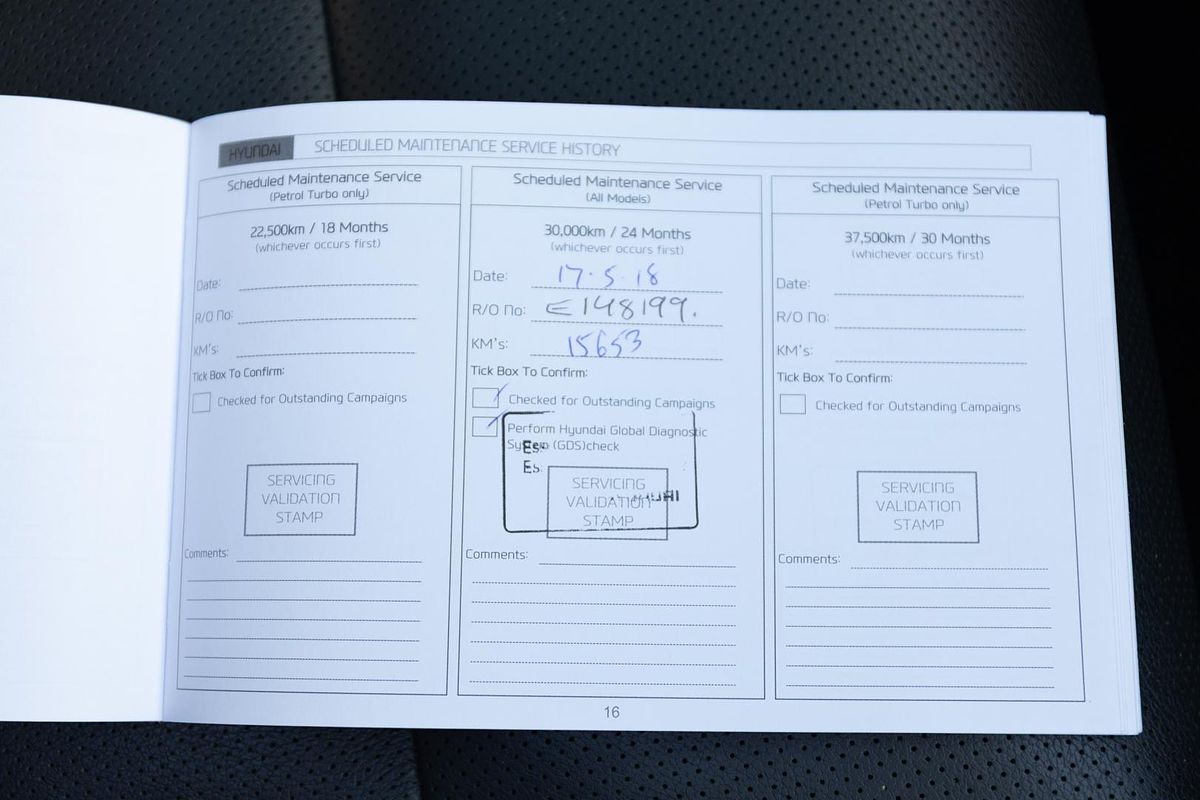 HYUNDAI SCHEDULED MAINTENANCE SERVICE HISTORY
Scheduled Maintenance Service
(Petrol Turbo only)
22,500km / 18 Months
(whichever occurs first)
Date:
R/O No:
KM's:
Tick Box To Confirm:
Checked for Outstanding Campaigns
SERVICING
VALIDATION
STAMP
Comments:
Scheduled Maintenance Service
(All Models)
30,000km / 24 Months
(whichever occurs first)
Date: 17.5.18
R/O No: E148199.
KM's: 15653
Tick Box To Confirm:
Checked for Outstanding Campaigns
Perform Hyundai Global Diagnostic
System (GDS)check
Es
Es
SERVICING
VALIDATION
STAMP
Comments:
Scheduled Maintenance Service
(Petrol Turbo only)
37,500km / 30 Months
(whichever occurs first)
Date:
R/O No:
KM's:
Tick Box To Confirm:
Checked for Outstanding Campaigns
SERVICING
VALIDATION
STAMP
Comments:
16